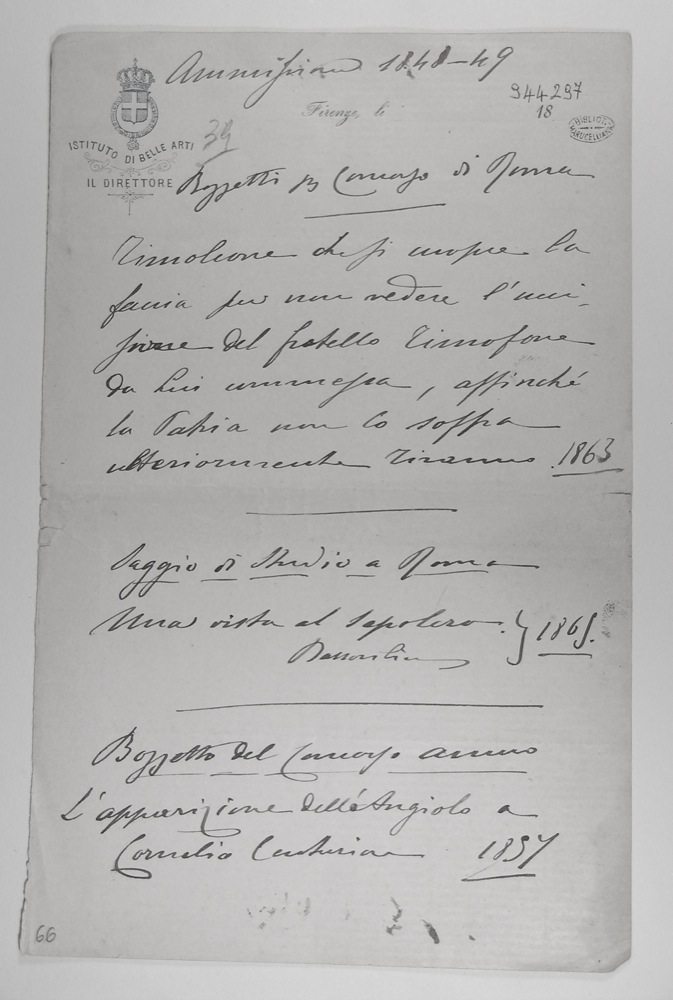 Ammissione 1848-49
944297
18
Firenze, li
BIBLIOT. MARUCELLIANA
34
ISTITUTO DI BELLE ARTI
IL DIRETTORE
Bozzetti pr Concorso di Roma
Timoleone che si cuopre la
faccia per non vedere l'ucci-
sione del fratello Timofone
da lui commessa, affinché
la Patria non lo soffra
ulteriormente Tiranno. 1863
Saggio di Studio a Roma
Una visita al Sepolcro. } 1865.
Bozzetto del Concorso annuo
L'apparizione dell'Angiolo a
Cornelio Centurione 1857
66